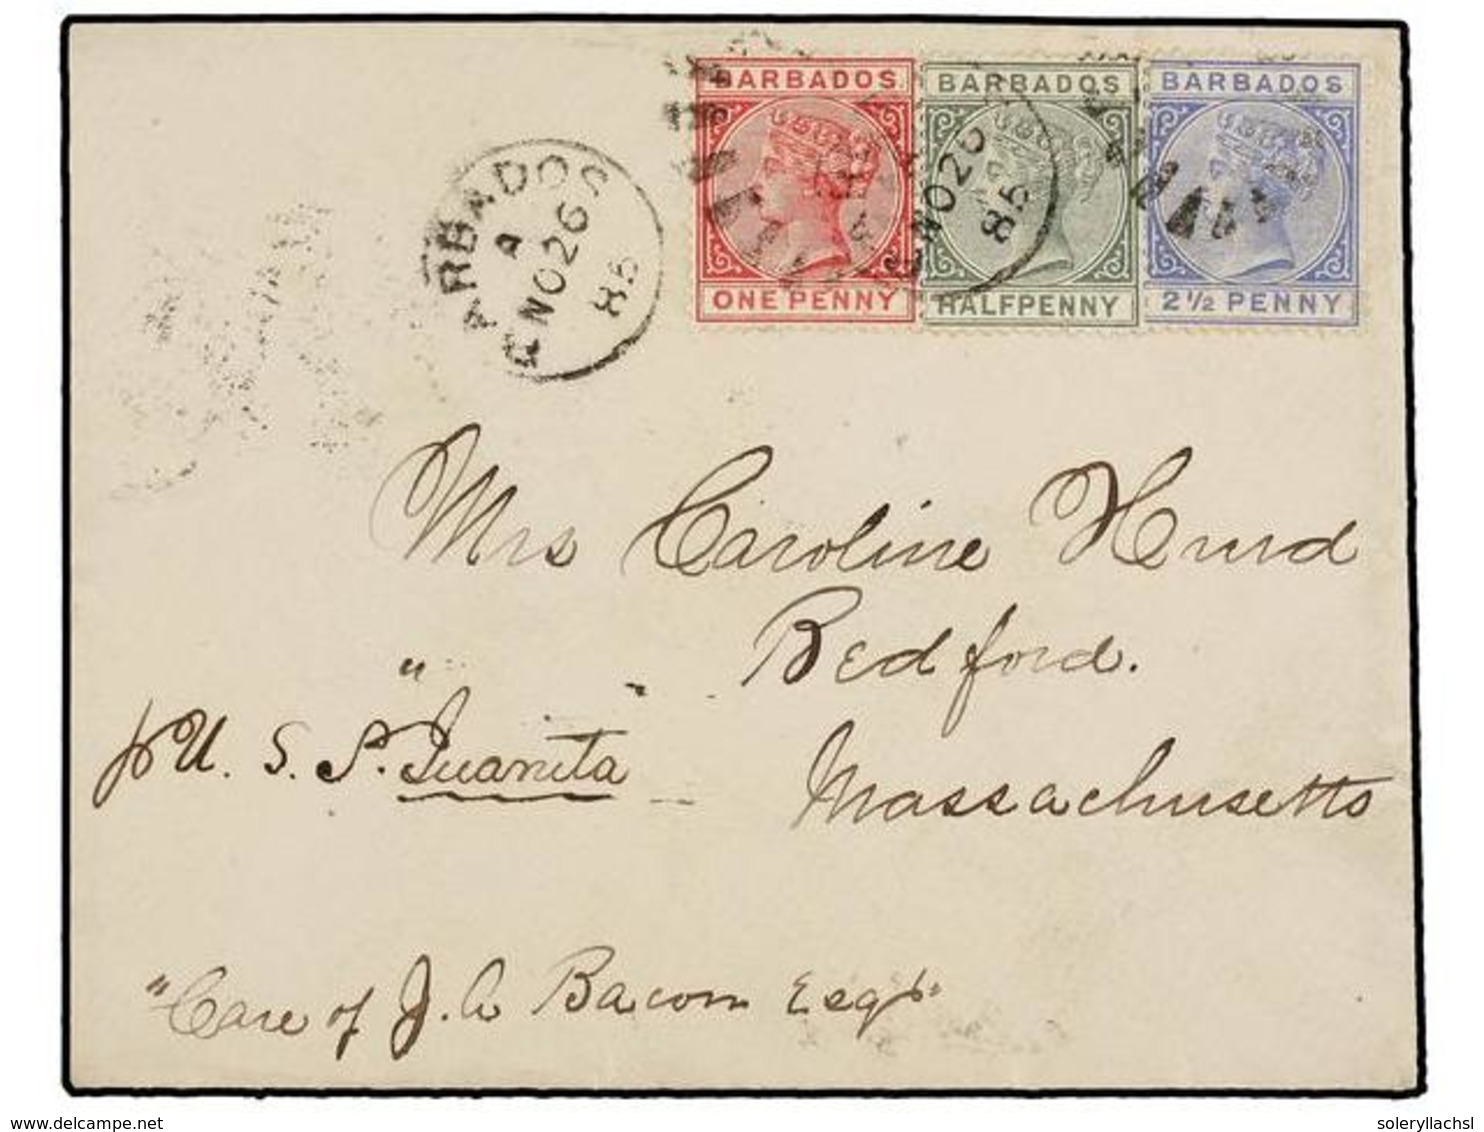 BARBADOS
BARBADOS
BARBADOS
ONE PENNY
HALFPENNY
2½ PENNY
BARBADOS
A
NO 26
85
NO 26
85
Mrs Caroline Hurd
Bedford.
Massachusetts
pr U. S. S. Juanita
"Care of J. A Bacon Esqr"
www.delcampe.net
soleryllachsl